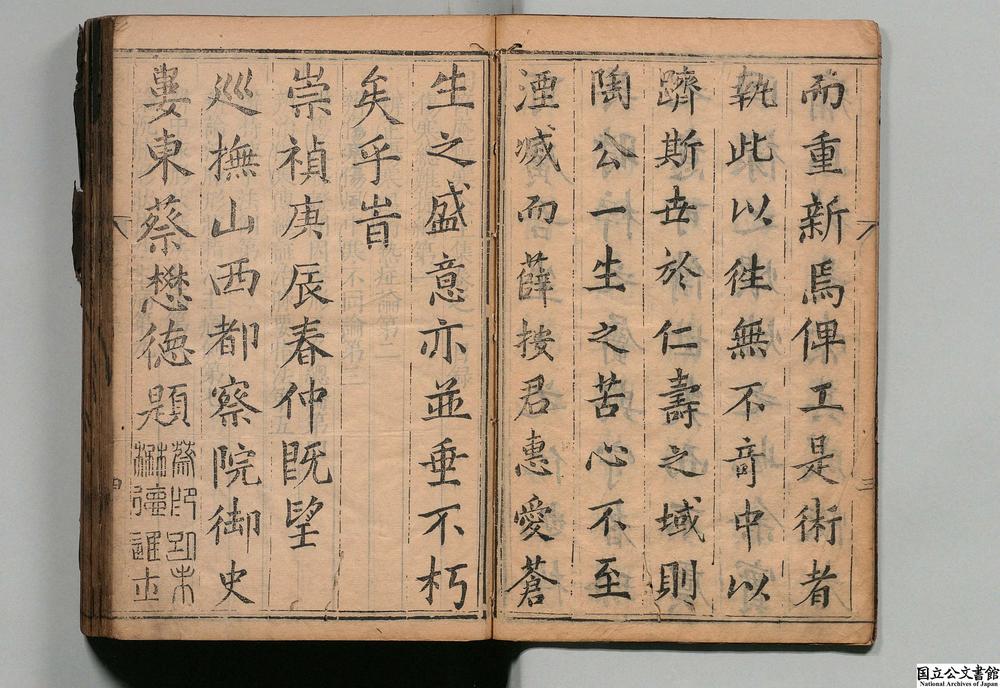 而重新焉俾工是術者
執此以徃無不竒中以
躋斯丗於仁壽之域則
陶公一生之苦心不至
湮滅而薛按君惠愛蒼
生之盛意亦並垂不朽
矣乎旹
崇禎庚辰春仲既望
巡撫山西都察院御史
婁東蔡懋德題
三
四
国立公文書館
National Archives of Japan